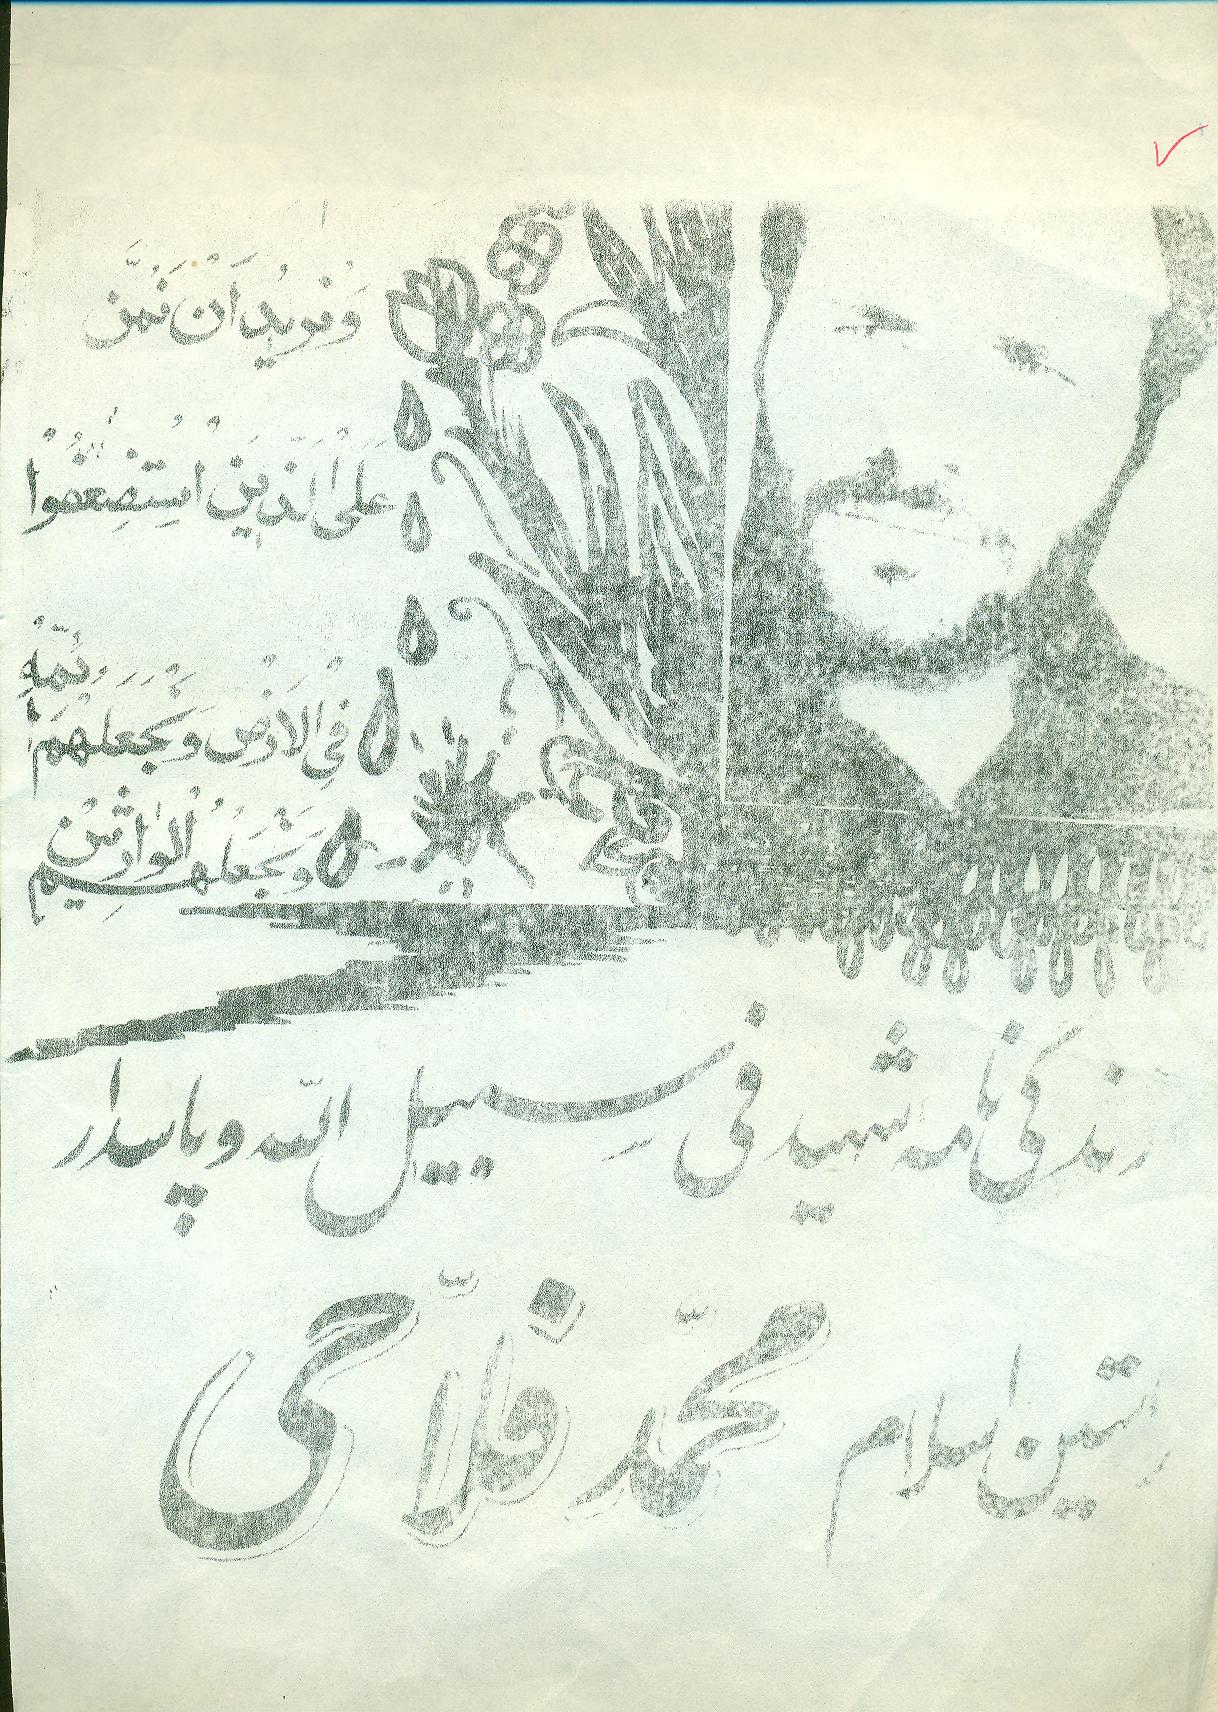 وَنُرِيدُ اَنْ نَمُنَّ
عَلَى الَّذِينَ اسْتُضْعِفُوا
فِي الْاَرْضِ وَنَجْعَلَهُمْ اَئِمَّةً
وَنَجْعَلَهُمُ الْوَارِثِينَ
زندگی نامه شهید فی سبیل الله و پاسدار
راستین اسلام محمّد فلّاحی